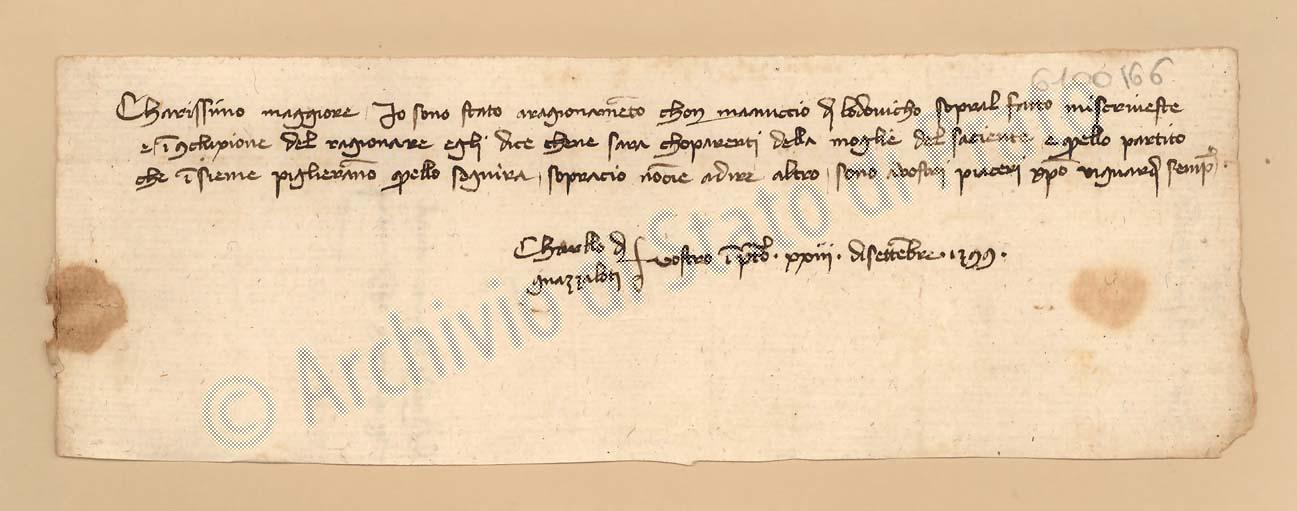 6100166
Charissimo maggiore. Io sono stato aragionamẽto chon maniccio dj lodovicho sopral fatto miscriveste
e ĩ 9cluxione del ragionare egli dice chene sara choparenti della moglie del saciente e quello partito
che ĩsieme piglierãno quello seguira, sopracio nõcie adire altro, sono avostri piaceri xp̃o viguardj semp̃.
Charllo dj
guazzaloti vostro ĩ p̃to. xxiii. di settẽbre. 1399.
© Archivio di Stato di